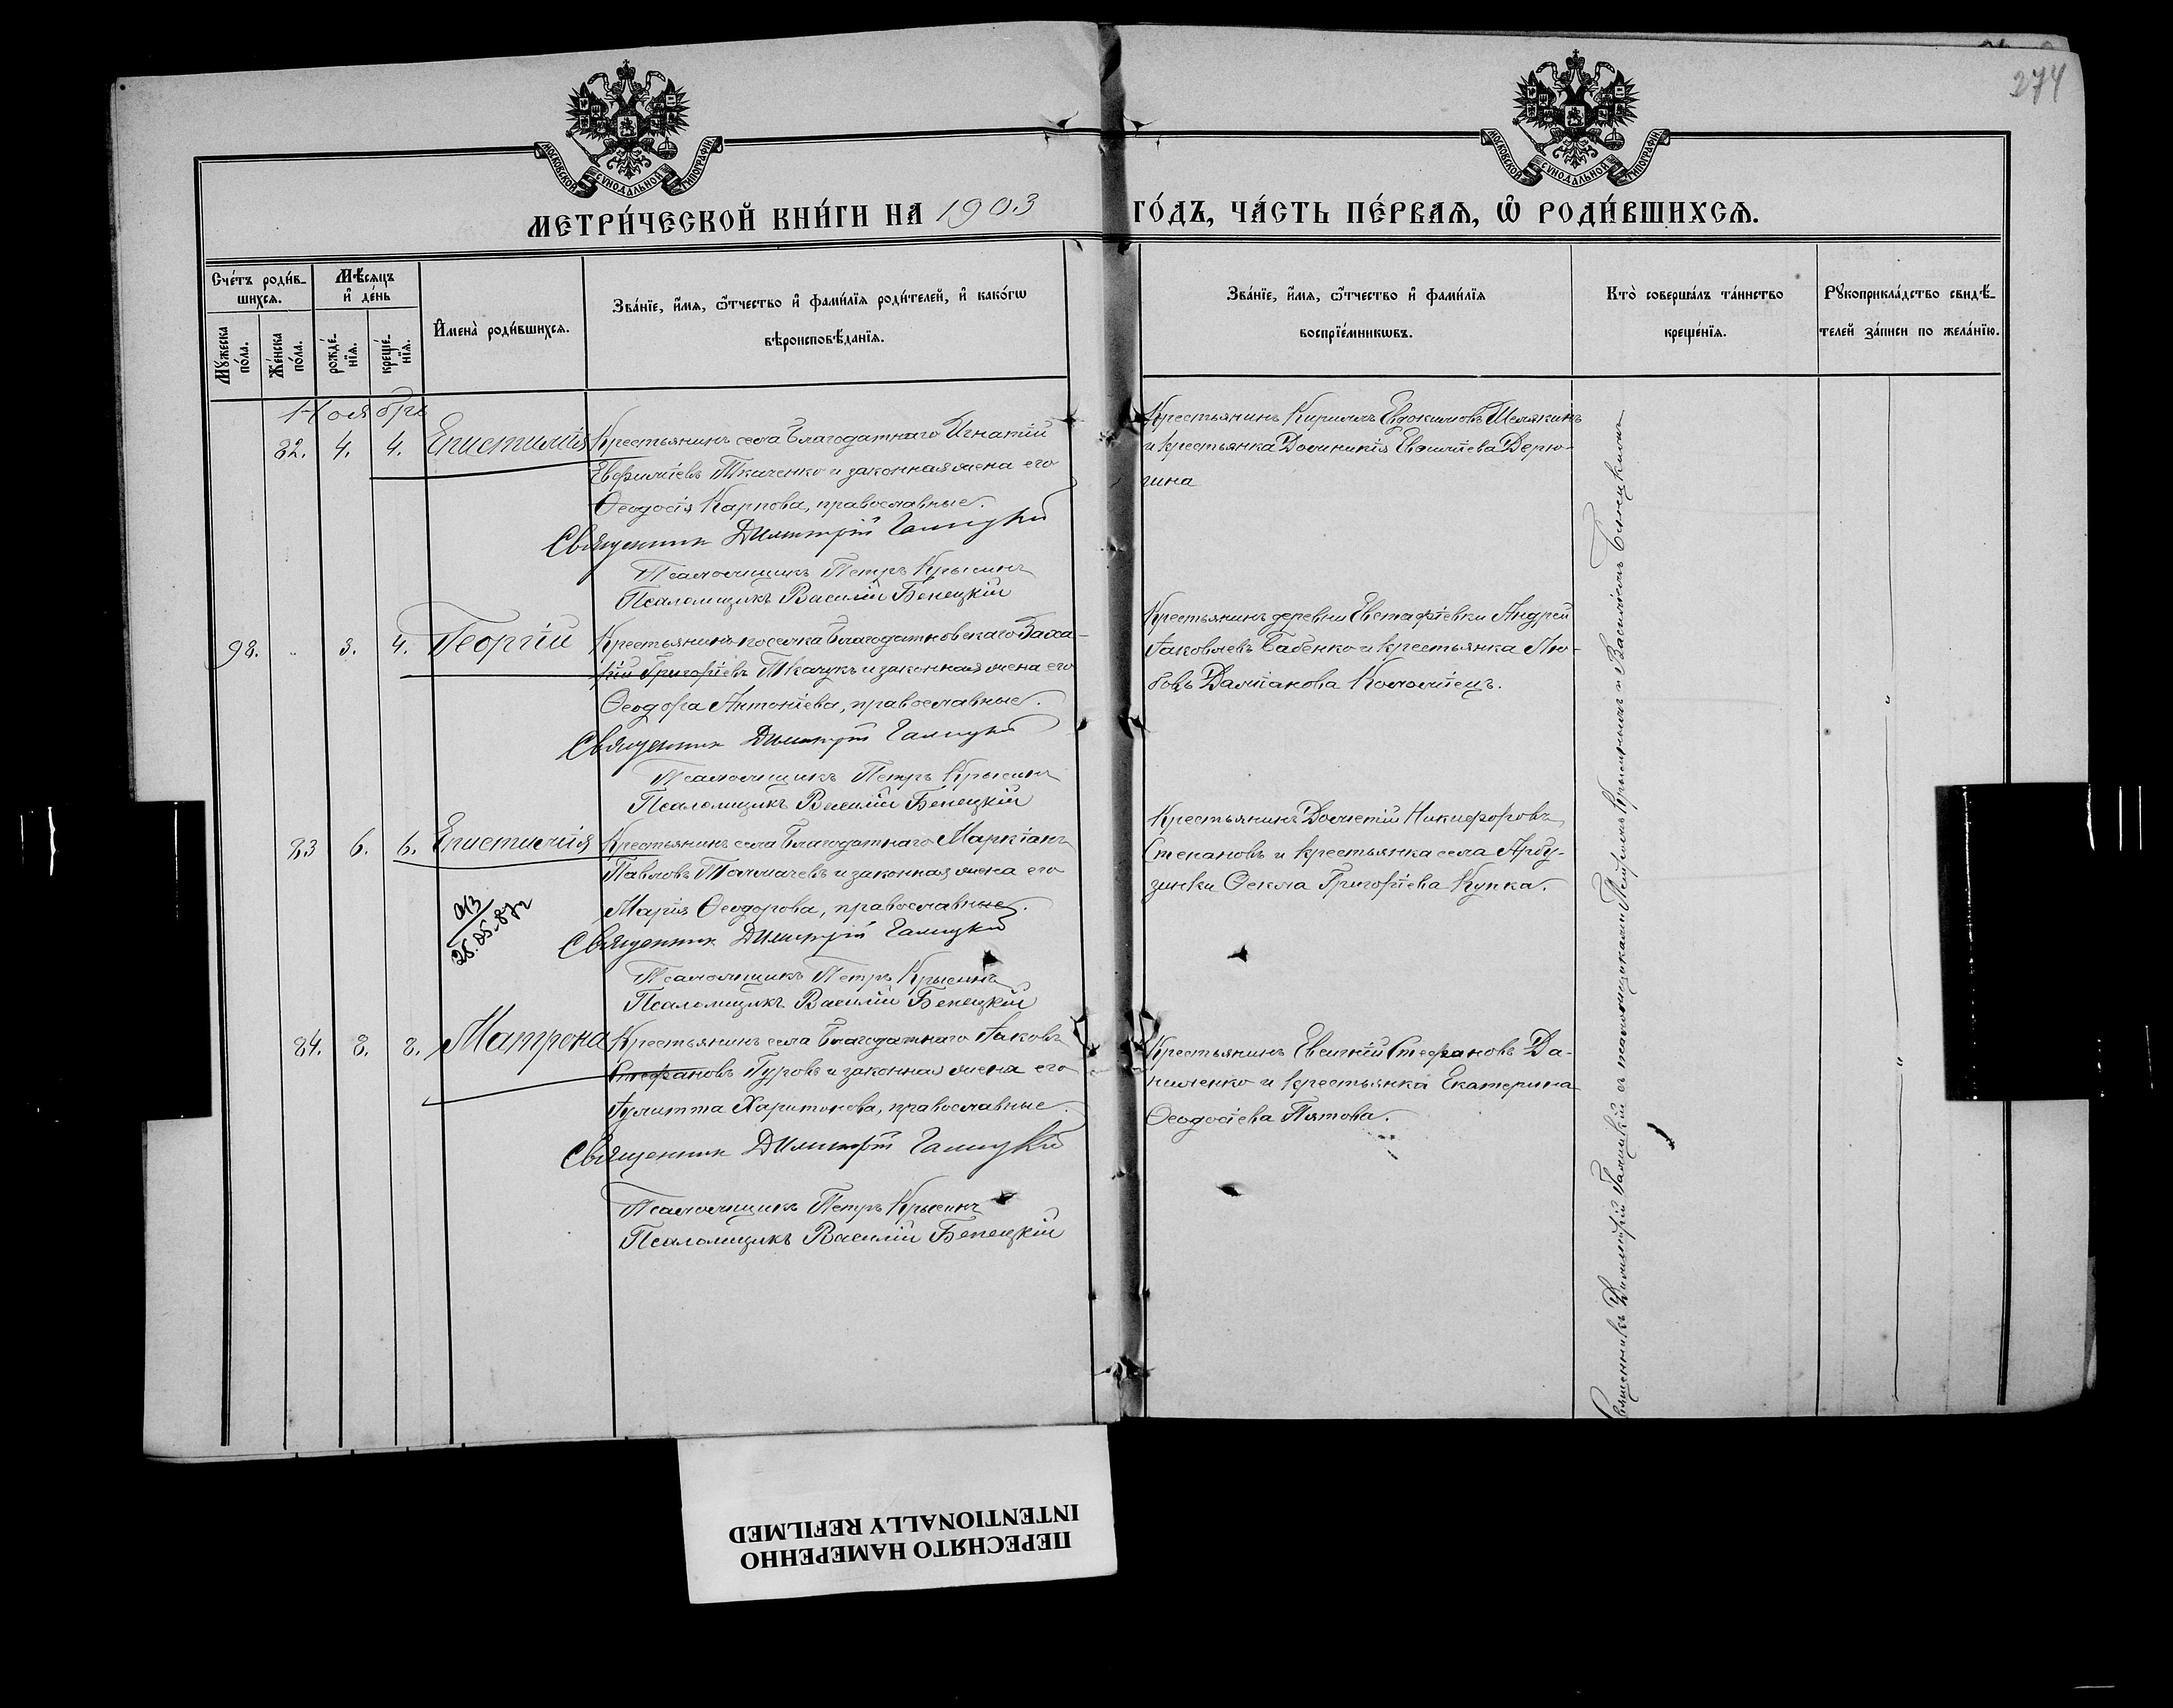 274
МОСКОВСКОЙ СѴНОДАЛЬНОЙ ТИПОГРАФІИ
МОСКОВСКОЙ СѴНОДАЛЬНОЙ ТИПОГРАФІИ
МЕТРИ́ЧЕСКОЙ КНИ́ГИ НА 1903
ГО́ДЪ, ЧА́СТЬ ПЕ́РВАѦ, Ѽ РОДИ́ВШИХСѦ.
Сче́тъ роди́в-
шихсѧ.
Мѣ́сѧцъ
и҆ де́нь
Мꙋ́жеска
по́ла.
Же́нска
по́ла.
рожде́-
нїѧ.
креще́-
нїѧ.
И҆мена̀ роди́вшихсѧ.
Зва́нїе, и҆́мѧ, ѻ҆́тчество и҆ фами́лїѧ роди́телей, и҆ како́гѡ
вѣроисповѣ́данїѧ.
Зва́нїе, и҆́мѧ, ѻ҆́тчество и҆ фами́лїѧ
воспрїе́мникѡвъ.
Кто̀ соверша́лъ та́инство
креще́нїѧ.
Рꙋкоприкла́дство свидѣ́-
телей за́писи по жела́нїю.
Ноября
82. 4. 4. Епистимія Крестьянинъ села Благодатнаго Игнатій
Евфиміевъ Ткаченко и законная жена его
Ѳеодосія Карпова, православные.
Священник Димитрій Галицкій
Псаломщикъ Петръ Крысинъ
Псаломщикъ Василій Бенецкій
Крестьянинъ Кириллъ Евдокимовъ Шелякинъ
и крестьянка Домникія Евѳиміева Верю-
гина
98. 3. 4. Георгій Крестьянинъ поселка Благодатновскаго Заха-
рій Григорьевъ Ткачукъ и законная жена его
Ѳеодора Антоніева, православные.
Священник Димитрій Галицкій
Псаломщикъ Петръ Крысинъ
Псаломщикъ Василій Бенецкій
Крестьянинъ деревни Евстафіевки Андрей
Іаковлевъ Бабенко и крестьянка Лю-
бовь Даміанова Коломіецъ.
83 6. 6. Епистимія Крестьянинъ села Благодатнаго Маркіанъ
Павловъ Толмачевъ и законная жена его
Марія Ѳеодорова, православные.
Священник Димитрій Галицкій
Псаломщикъ Петръ Крысинъ
Псаломщикъ Василій Бенецкій
Крестьянинъ Дометій Никифоровъ
Степановъ и крестьянка села Арбу-
зинки Ѳекла Григоріева Купка.
84. 8. 8. Матрона Крестьянинъ села Благодатнаго Іаковъ
Стефановъ Гуровъ и законная жена его
Іулитта Харитонова, православные.
Священник Димитрій Галицкій
Псаломщикъ Петръ Крысинъ
Псаломщикъ Василій Бенецкій
Крестьянинъ Евгеній Стефановъ Да-
ниленко и крестьянка Екатерина
Ѳеодосіева Пятова.
Священникъ Димитрій Галицкій съ псаломщиками Петромъ Крысинымъ и Василіемъ Бенецкимъ
ПЕРЕСНЯТО НАМЕРЕННО
INTENTIONALLY REFILMED